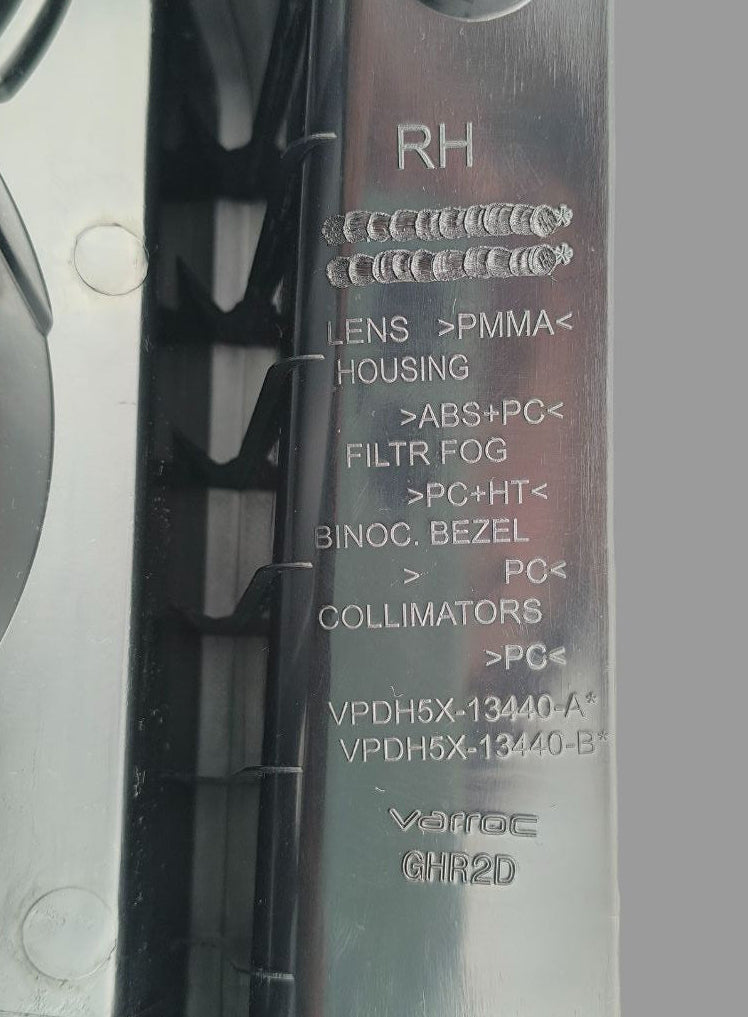 RH
LENS >PMMA<
HOUSING
>ABS+PC<
FILTR FOG
>PC+HT<
BINOC. BEZEL
> PC<
COLLIMATORS
>PC<
VPDH5X-13440-A*
VPDH5X-13440-B*
varroc
GHR2D